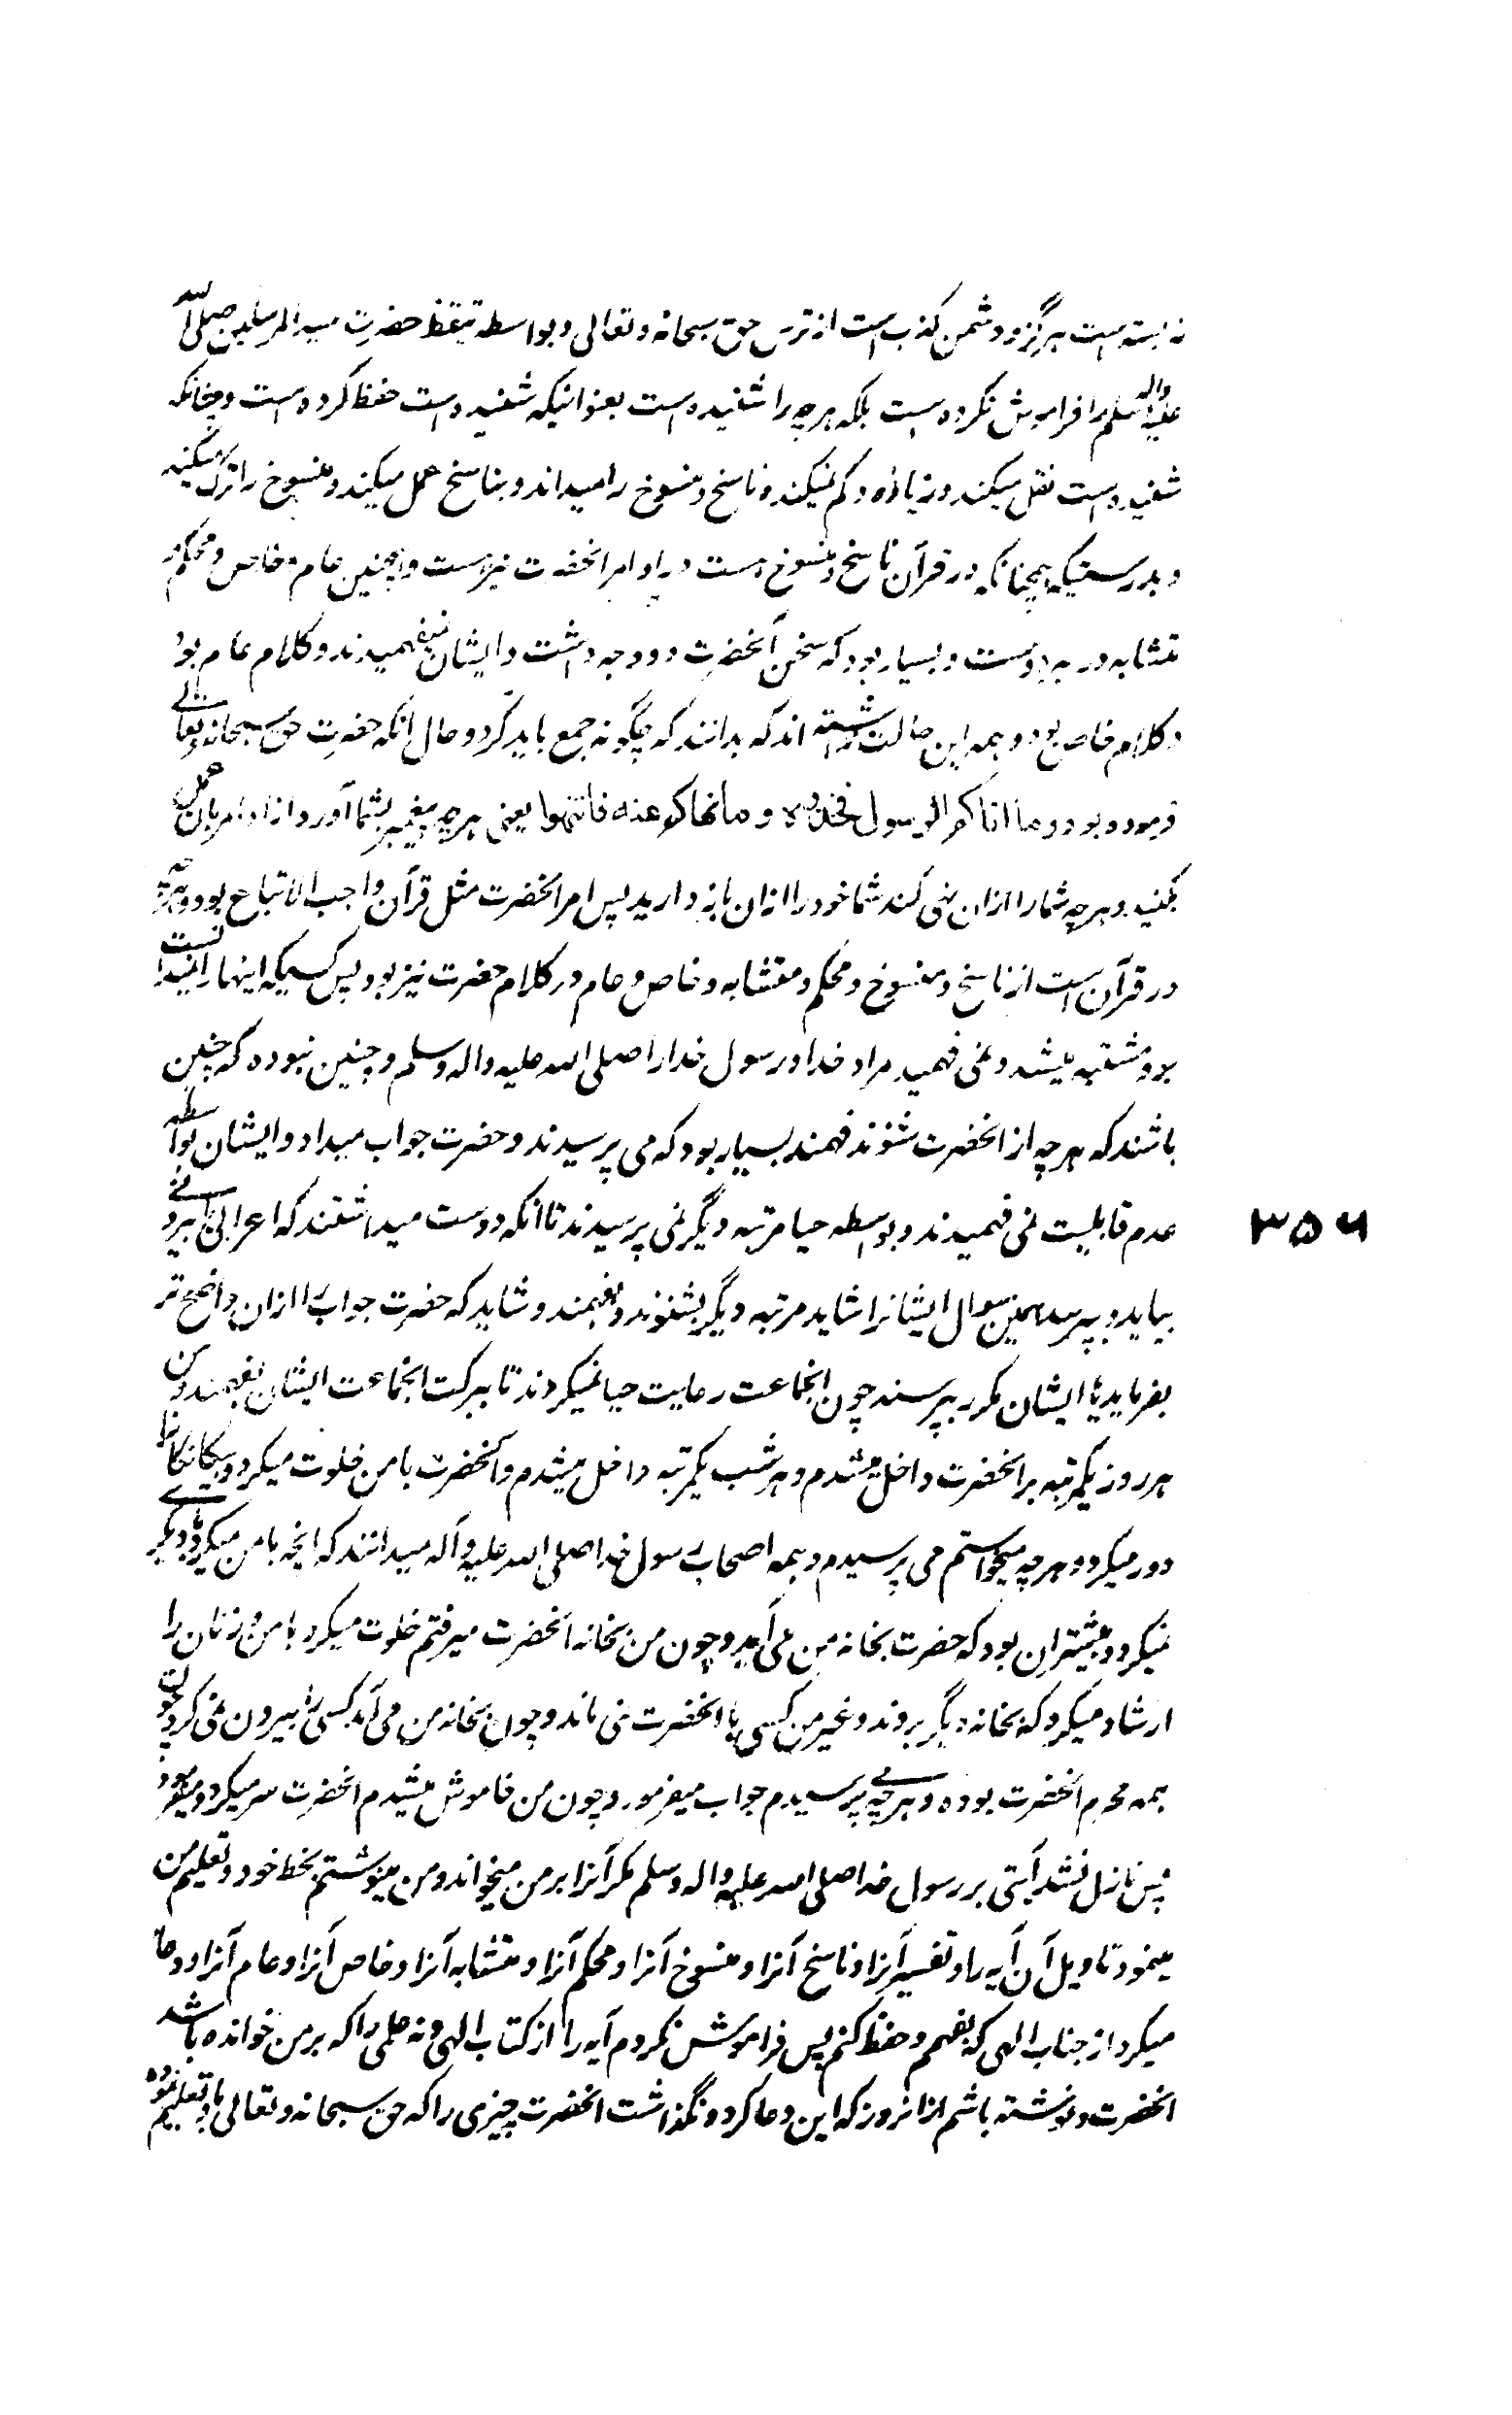 نه بسته است هرگز و دشمن کذب است از ترس حق سبحانه و تعالی و بواسطه تیقظ حضرت سید المرسلین صلی الله
علیه واله وسلم را فراموش نکرده است بلکه هرچه را شنیده است بعنوانیکه شنیده است حفظ کرده است و چنانکه
شنیده است نقل میکند و زیاده و کم نمیکند و ناسخ و منسوخ را میداند و بناسخ عمل میکند و منسوخ را ترک میکند
و بدرستیکه همچنانکه در قرآن ناسخ و منسوخ هست در اوامر انحضرت نیز هست و همچنین عام و خاص و محکم و
متشابه در هر دو هست و بسیار بود که سخن آنحضرت دو وجه داشت و ایشان نمیفهمیدند و کلام عام بود
و کلام خاص بود و همه این حالت نداشته اند که بدانند که چگونه جمع باید کرد و حال انکه حضرت حق سبحانه و تعالی
فرموده بود و ما اتاکم الرسول فخذوه و ما نهاکم عنه فانتهوا یعنی هرچه پیغمبر بشما آورد از اوامر بان عمل
بکنید و هرچه شما را ازان نهی کند شما خود را ازان باز دارید پس امر انحضرت مثل قرآن واجب الاتباع بود و هرچه
در قرآن است از ناسخ و منسوخ و محکم و متشابه و خاص و عام در کلام حضرت نیز بود پس کسیکه اینها را نمیدانست
برو مشتبه میشد و نمی فهمید مراد خدا و رسول خدا را صلی الله علیه واله وسلم و چنین نبوده که چنین
باشند که هرچه از انحضرت شنوند فهمند بسیار بود که می پرسیدند و حضرت جواب میداد و ایشان بواسطه
عدم قابلیت نمی فهمیدند و بواسطه حیا مرتبه دیگر نمی پرسیدند تا انکه دوست میداشتند که اعرابی از بیرونی
۳۵۶
بیاید و بپرسد همین سوال ایشانرا شاید مرتبه دیگر بشنوند و بفهمند و شاید که حضرت جواب را ازان واضح تر
بفرماید یا ایشان مکرر بپرسند چون انجماعت رعایت حیا نمیکردند تا ببرکت انجماعت ایشان بفهمند و من
هر روز یکمرتبه بر انحضرت داخل میشدم و هر شب یکمرتبه داخل میشدم و آنحضرت با من خلوت میکرد و بیکانکانرا
دور میکرد و هرچه میخواستم می پرسیدم و همه اصحاب رسول خدا صلی الله علیه و آله میدانند که انچه با من میکرد با دیگری
نمیکرد و بیشتر ان بود که حضرت بخانه من می آمد و چون من بخانه انحضرت میرفتم خلوت میکرد با من و زنان را
ارشاد میکرد که بخانه دیگر بروند و غیر من کسی با انحضرت نمی ماند و چون بخانه من می آمد کسی را بیرون نمی کرد چون
همه محرم انحضرت بوده و هرچه می پرسیدم جواب میفرمود و چون من خاموش میشدم انحضرت سر میکرد و میفرمود
پس نازل نشد آیتی بر رسول خدا صلی الله علیه واله وسلم مکر آنرا بر من میخواند و من مینوشتم بخط خود و تعلیم من
مینمود تاویل آن آیه را و تفسیر آنرا و ناسخ آنرا و منسوخ آنرا و محکم آنرا و متشابه آنرا و خاص آنرا و عام آنرا و دعا
میکرد از جناب الهی که بفهمم و حفظ کنم پس فراموش نکردم آیه را از کتاب الهی و نه علمی را که بر من خوانده باشد
انحضرت و نوشته باشم از انروز که این دعا کرد و نگذاشت انحضرت چیزی را که حق سبحانه و تعالی باو تعلیم نموده